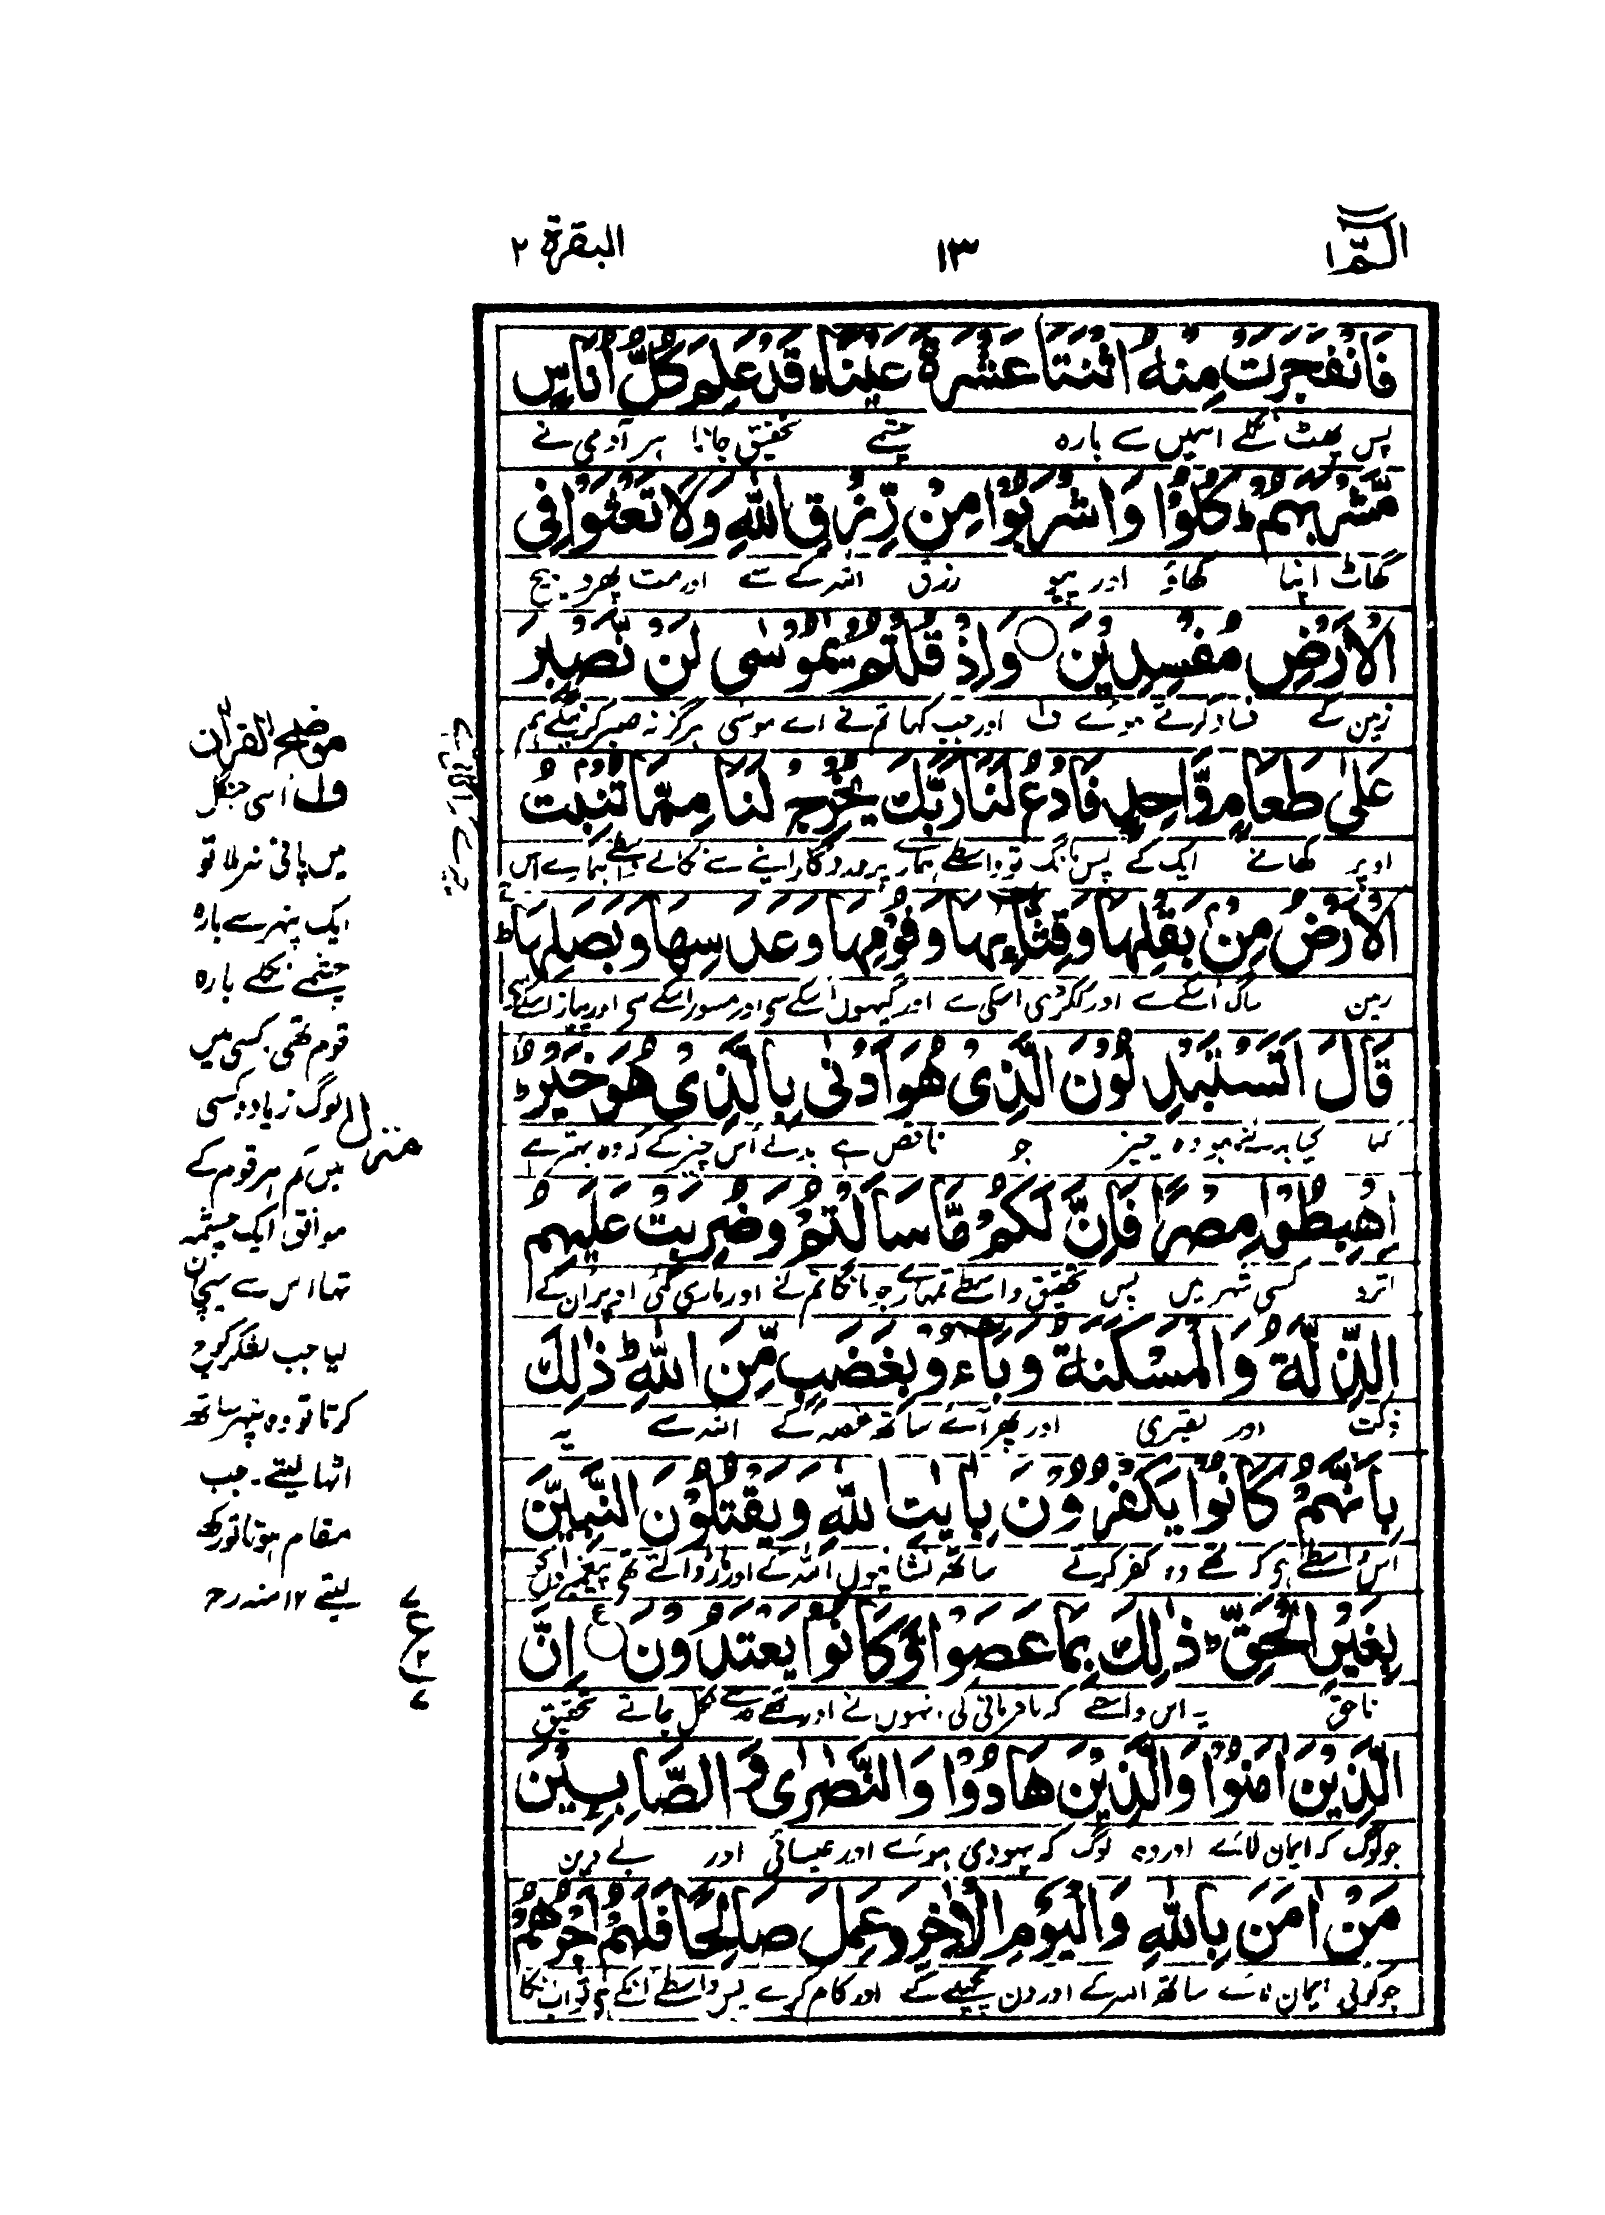 الٓمّٓ ١٣ البقرة ٢
فَانْفَجَرَتْ مِنْهُ اثْنَتَا عَشْرَةَ عَيْنًا ؕ قَدْ عَلِمَ كُلُّ اُنَاسٍ
پس پھٹ نکلے اسمیں سے بارہ چشمے تحقیق جانا ہر آدمی نے
مَّشْرَبَهُمْ ؕ كُلُوْا وَاشْرَبُوْا مِنْ رِّزْقِ اللّٰهِ وَلَا تَعْثَوْا فِى
گھاٹ اپنا کھاؤ اور پیو رزق اللہ کے سے اور مت پھرو بیچ
الْاَرْضِ مُفْسِدِيْنَ ○ وَاِذْ قُلْتُمْ يٰمُوْسٰى لَنْ نَّصْبِرَ
زمین کے فساد کرتے ہوئے ف۱ اور جب کہا تم نے اے موسٰی ہرگز نہ صبر کرینگے ہم
عَلٰى طَعَامٍ وَّاحِدٍ فَادْعُ لَنَا رَبَّكَ يُخْرِجْ لَنَا مِمَّا تُنْۢبِتُ
اوپر کھانے ایک کے پس مانگ تو واسطے ہمارے پروردگار اپنے سے نکالے واسطے ہمارے اس
الْاَرْضُ مِنْۢ بَقْلِهَا وَقِثَّآئِهَا وَفُوْمِهَا وَعَدَسِهَا وَبَصَلِهَا ؕ
زمین ساگ اسکے سے اور ککڑی اسکی سے اور گیہوں اسکے سے اور مسور اسکے سے اور پیاز اسکے سے
قَالَ اَتَسْتَبْدِلُوْنَ الَّذِىْ هُوَ اَدْنٰى بِالَّذِىْ هُوَ خَيْرٌ ؕ
کہا کیا بدلتے ہو وہ چیز جو ناقص ہے بدلے اس چیز کے کہ وہ بہتر ہے
اِهْبِطُوْا مِصْرًا فَاِنَّ لَكُمْ مَّا سَاَلْتُمْ وَضُرِبَتْ عَلَيْهِمُ
اترو کسی شہر میں پس تحقیق واسطے تمہارے جو مانگا تم نے اور ماری گئی اوپر ان کے
الذِّلَّةُ وَالْمَسْكَنَةُ وَبَآءُوْ بِغَضَبٍ مِّنَ اللّٰهِ ؕ ذٰلِكَ
ذلت اور فقیری اور پھر آئے ساتھ غصہ کے اللہ سے یہ
بِاَنَّهُمْ كَانُوْا يَكْفُرُوْنَ بِاٰيٰتِ اللّٰهِ وَيَقْتُلُوْنَ النَّبِيّٖنَ
اس واسطے ہے کہ تھے وہ کفر کرتے ساتھ نشانیوں اللہ کے اور مار ڈالتے تھے پیغمبروں کو
بِغَيْرِ الْحَقِّ ؕ ذٰلِكَ بِمَا عَصَوْا وَّكَانُوْا يَعْتَدُوْنَ ○ اِنَّ
ناحق یہ اس واسطے کہ نافرمانی کی انہوں نے اور تھے حد سے نکل جاتے تحقیق
الَّذِيْنَ اٰمَنُوْا وَالَّذِيْنَ هَادُوْا وَالنَّصٰرٰى وَالصّٰبِـِٕيْنَ
جو لوگ کہ ایمان لائے اور وہ لوگ کہ یہودی ہوئے اور عیسائی اور بے دین
مَنْ اٰمَنَ بِاللّٰهِ وَالْيَوْمِ الْاٰخِرِ وَعَمِلَ صَالِحًا فَلَهُمْ اَجْرُهُمْ
جو کوئی ایمان لائے ساتھ اللہ کے اور دن پچھلے کے اور کام کرے پس واسطے انکے ہے ثواب انکا
موضح القرآن
ف۱ اسی جنگل
میں پانی نہ ملا تو
ایک پتھر سے بارہ
چشمے نکلے بارہ
قوم تھی۔ کسی میں
لوگ زیادہ کسی
میں کم ہر قوم کے
موافق ایک چشمہ
تھا اس سے پہچان
لیا جب لشکر کوچ
کرتا تو وہ پتھر ساتھ
اٹھا لیتے۔ جب
مقام ہوتا تو رکھ
لیتے ۱۲ منہ رح
منزل
ع